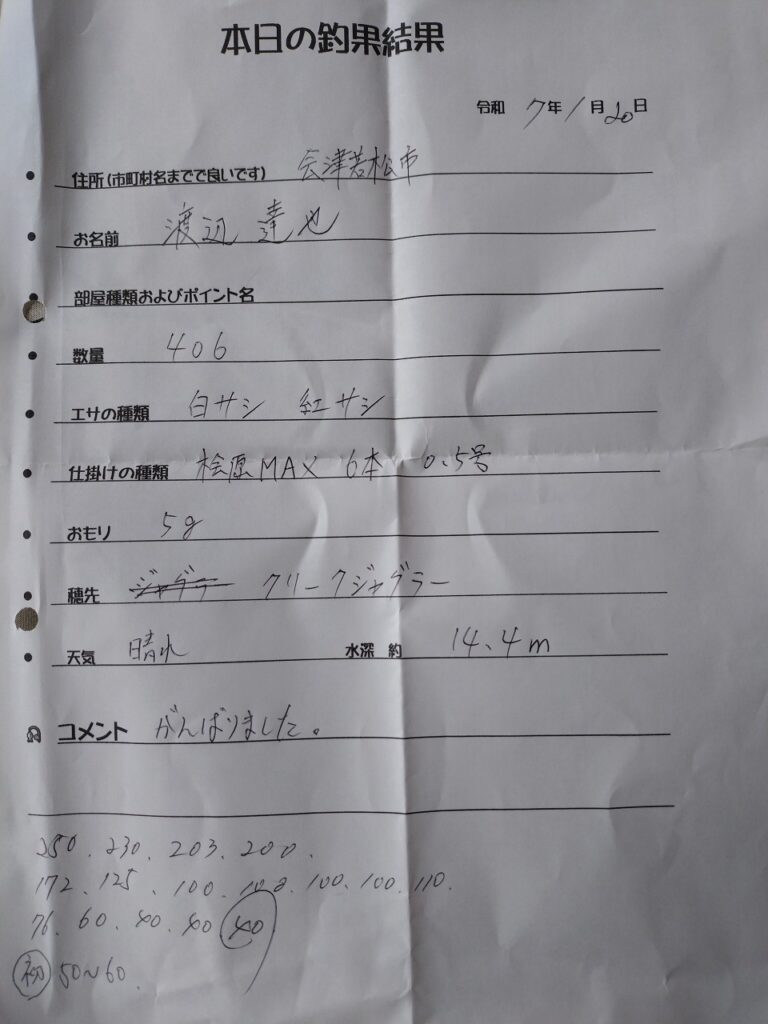 本日の釣果結果
令和 7年 1月 20日
住所(市町村名までで良いです) 会津若松市
お名前 渡辺 達也
部屋種類およびポイント名
数量 406
エサの種類 白サシ 紅サシ
仕掛けの種類 桧原MAX 6本 0.5号
おもり 5g
穂先 ジャグラー クリークジャグラー
天気 晴れ 水深 約 14.4m
コメント がんばりました。
250. 230. 203. 200.
172. 125. 100. 108. 100. 100. 110.
76. 60. 40. 40 40
初 50~60.